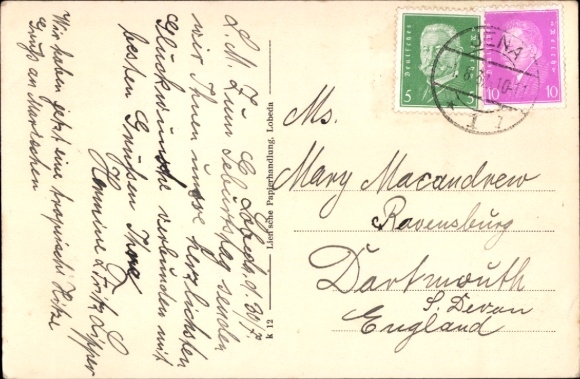 Lobeda, d. 30/7.
L. M. Zum Geburtstag senden
wir Ihnen unsre herzlichsten
Glückwünsche verbunden mit
besten Grüßen Ihre
Hermine & Fritz Lipper
Wir haben jetzt eine tropische Hitze
Gruß an
Lien'sche Papierhandlung, Lobeda
k 12
Deutsches Reich
5 5
10 10
JENA
1
Ms.
Mary Macandrew
Ravensburg
Dartmouth
S. Devon
England